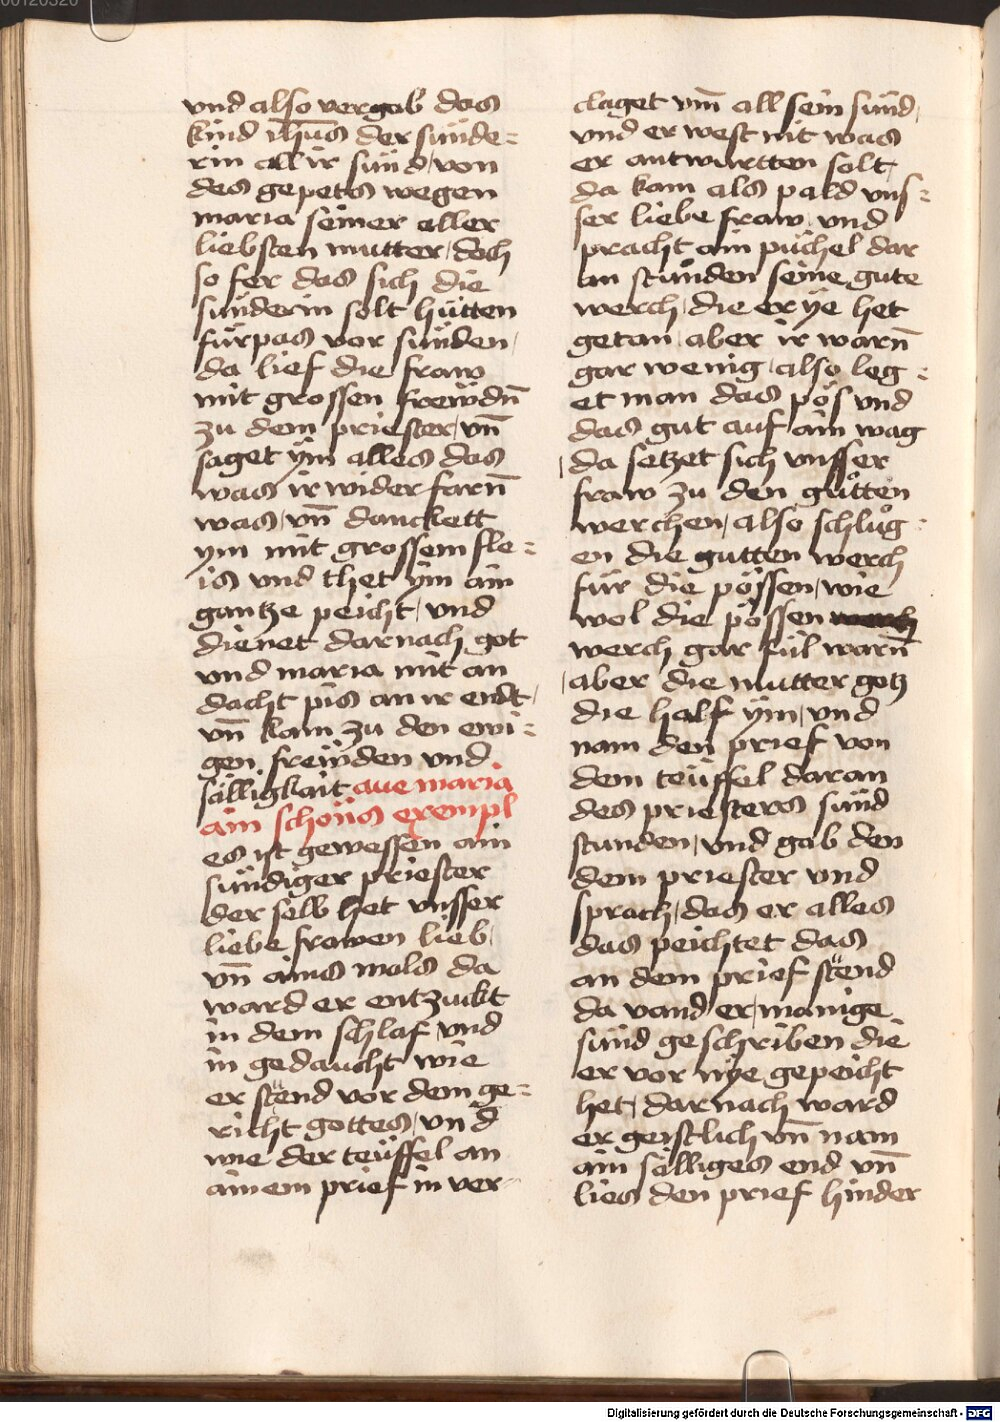 vnd also vergab das
kind ihsus der sünde=
rin all ir sünd / von
des gepets wegen
maria seiner aller
liebsten mutter / doch
so fer das sich die
sünderin solt hütten
fürpas vor sünden /
da lief die fraw
mit grossen frewdn̄
zu dem priester / vn̄
saget ÿm alles das
was ir wider farn̄
was / vn̄ danckett
ym mit grossem fle=
is vnd thet ÿm ain
gantze peicht / vnd
dienet darnach got
vnd maria mit an
dacht pis an ir endt /
vn̄ kam zu den ewi=
gen frewden vnd
sälligkait aue maria
ain schöns exempl
es ist gewessen ain
sündiger priester
der selb het vnsser
liebe frawen lieb /
vn̄ ains mals da
ward er entzuckt
in dem schlaf / vnd
in gedaucht wie
er stend vor dem ge=
richt gottes / vnd
wie der teüffel an
ainem prief in ver=
claget vm̄ all sein sünd /
vnd er west nit was
er antwurtten solt /
da kam als pald vns=
ser liebe fraw / vnd
pracht ain püchel dar
an stünden seine gute
werch / die er ÿe het
getan / aber ir warn̄
gar wenig / also leg=
et man das pös vnd
das gut auf ain wag
/ da setzet sich vnsser
fraw zu den gůtten
werchen / also schlůg=
en die gutten werch
für die pössen / wie
wol die pössen werch
werch gar füil warn̄
/ aber die mutter gotz
die half ÿm / vnd
nam den prief von
dem teüffel daran
des priesters sünd
stunden / vnd gab den
dem priester vnd
sprach / das er alles
das peichtet das
an dem prief stend
da vand er / manige
sünd geschriben die
er vor nÿe gepeicht
het / darnach ward
er geistlich vn̄ nam
ain sälliges end vn̄
lies den prief hinder
Digitalisierung gefördert durch die Deutsche Forschungsgemeinschaft - DFG